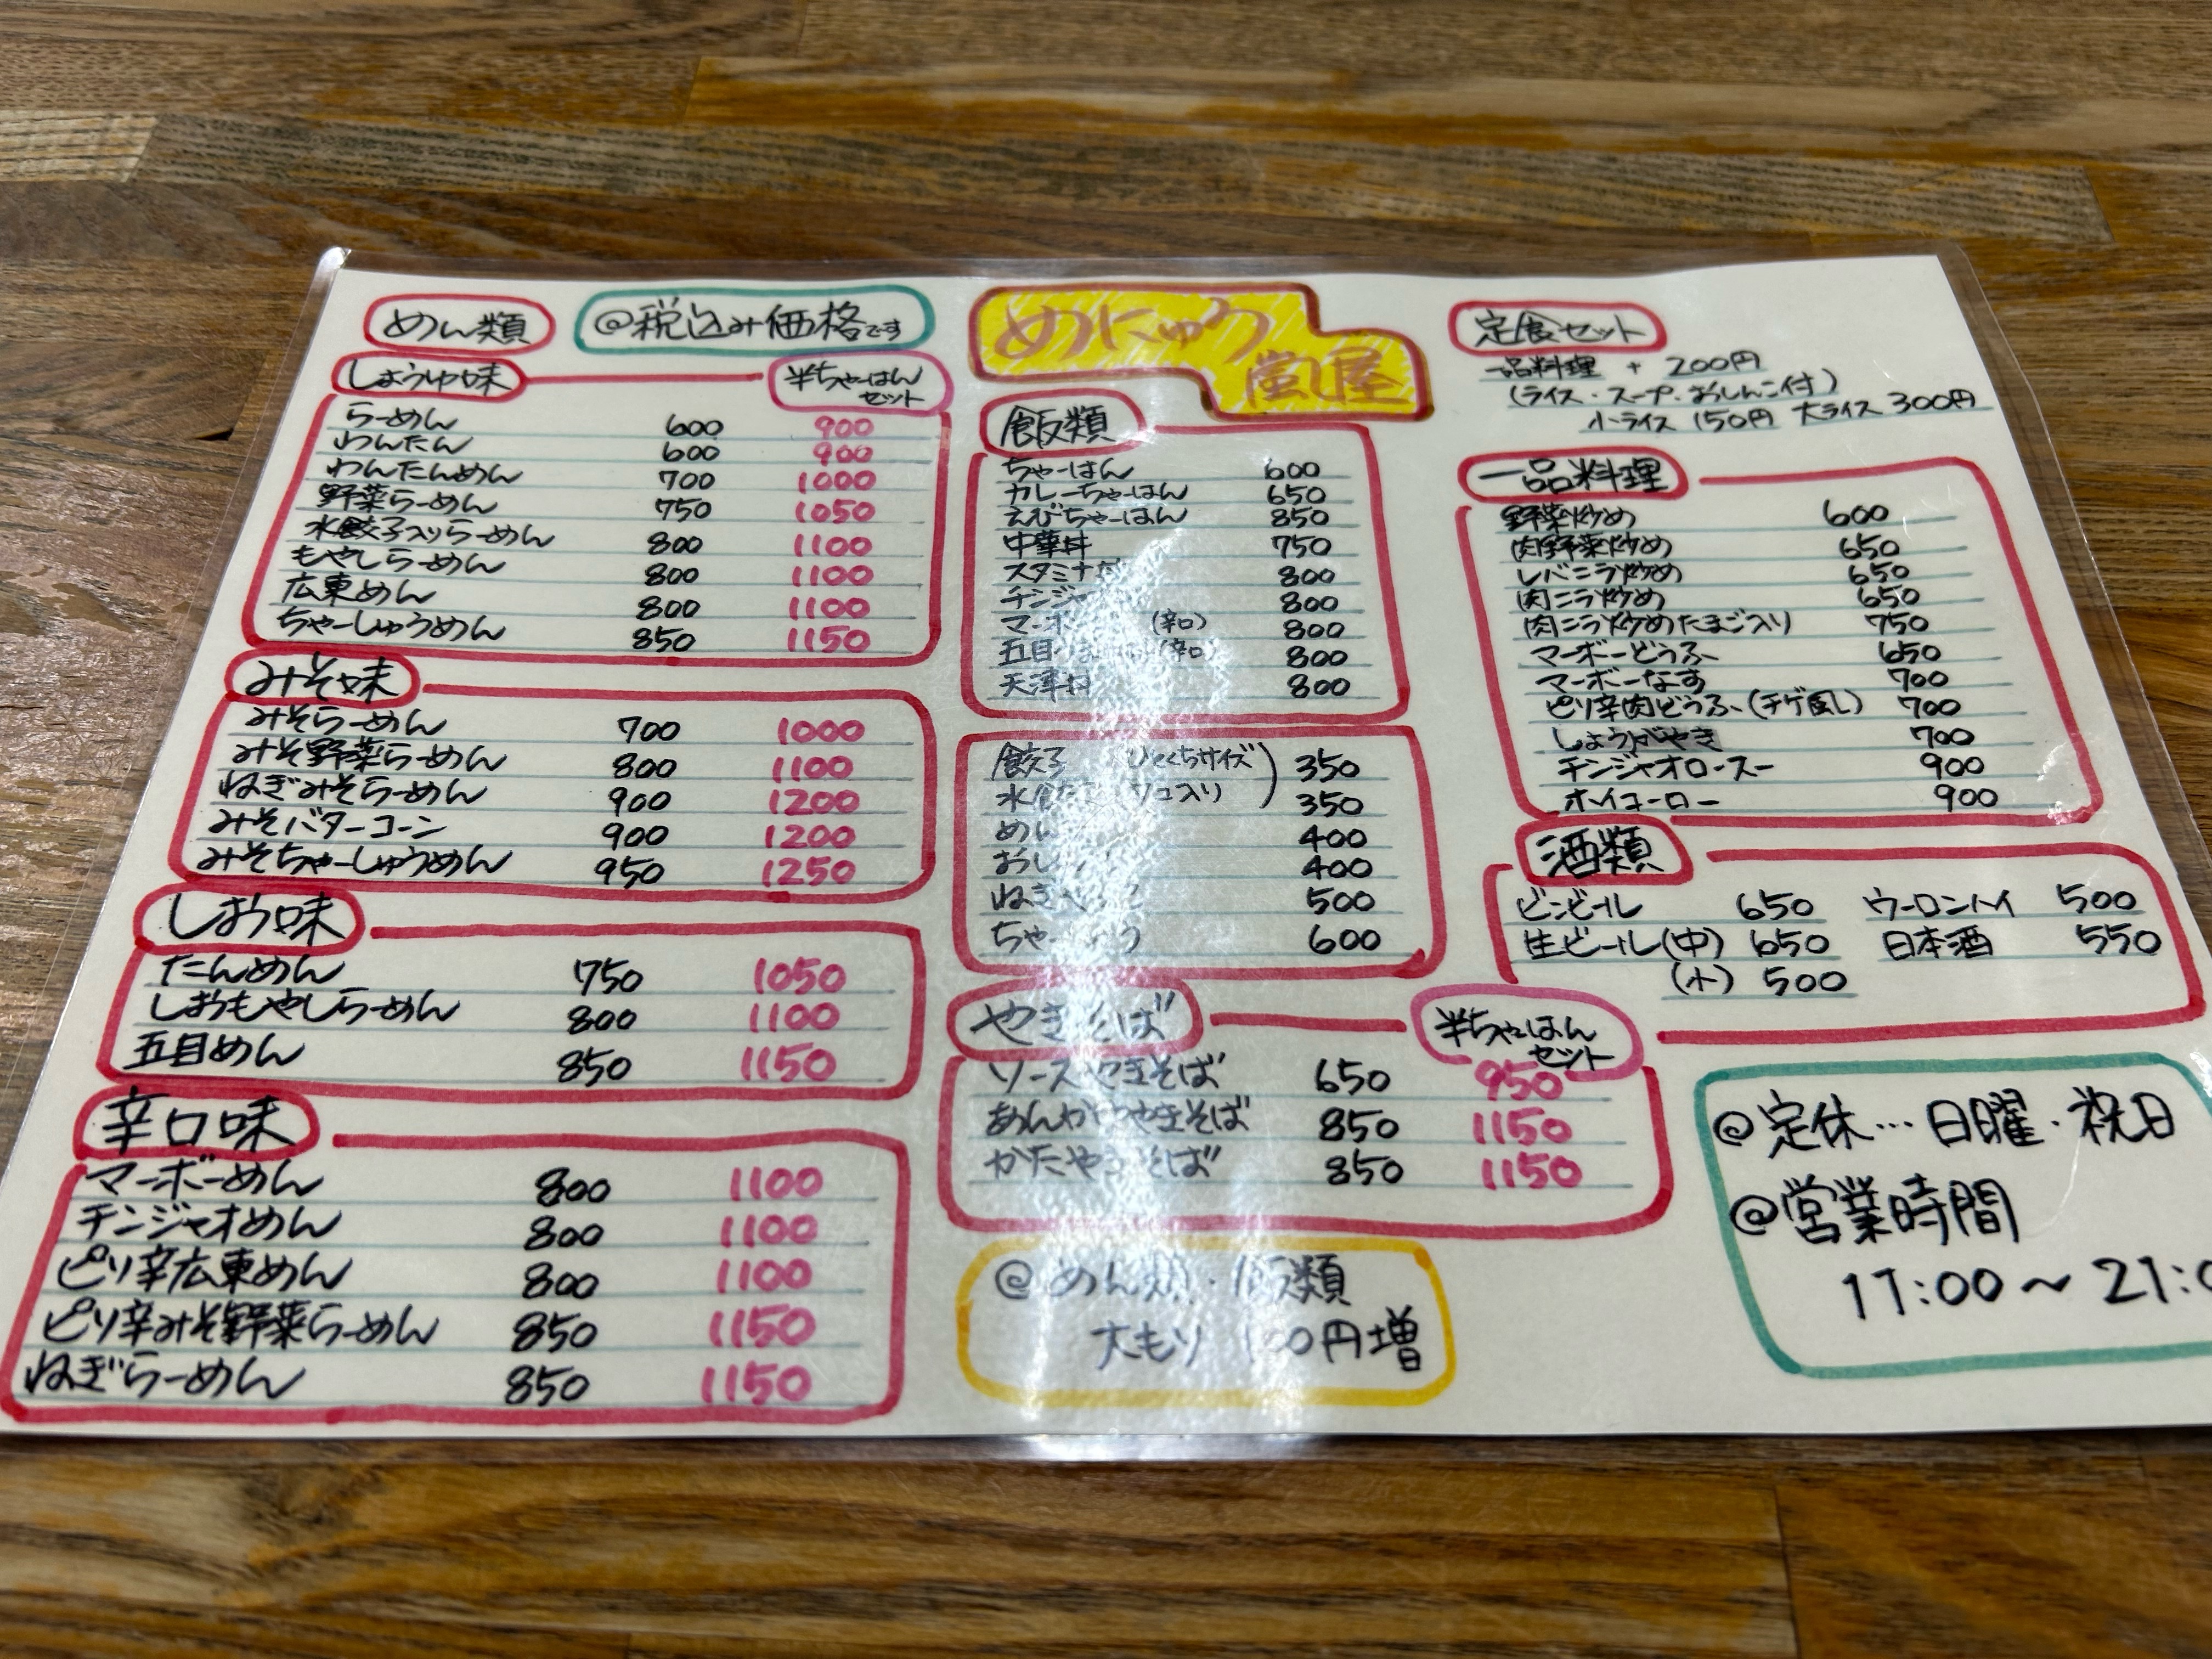 めん類
@税込み価格です
しょうゆ味
半ちゃーはん
セット
らーめん 600 900
わんたん 600 900
わんたんめん 700 1000
野菜らーめん 750 1050
水餃子入りらーめん 800 1100
もやしらーめん 800 1100
広東めん 800 1100
ちゃーしゅうめん 850 1150
みそ味
みそらーめん 700 1000
みそ野菜らーめん 800 1100
ねぎみそらーめん 900 1200
みそバターコーン 900 1200
みそちゃーしゅうめん 950 1250
しお味
たんめん 750 1050
しおもやしらーめん 800 1100
五目めん 850 1150
辛口味
マーボーめん 800 1100
チンジャオめん 800 1100
ピリ辛広東めん 800 1100
ピリ辛みそ野菜らーめん 850 1150
ねぎらーめん 850 1150
めにゅう
嵐屋
飯類
ちゃーはん 600
カレーちゃーはん 650
えびちゃーはん 850
中華丼 750
スタミナ 800
チンジャ 800
マーボ (辛口) 800
五目 (辛口) 800
天津丼 800
餃子 ひとくちサイズ 350
水餃子 入り 350
めん 400
おし 400
ねぎ 500
ちゃー 600
やきそば
半ちゃーはん
セット
ソースやきそば 650 950
あんかけやきそば 850 1150
かたやきそば 850 1150
@めん類・飯類
大もり 100円増
定食セット
一品料理 + 200円
(ライス・スープ・おしんこ付)
小ライス 150円 大ライス 300円
一品料理
野菜炒め 600
肉野菜炒め 650
レバニラ炒め 650
肉ニラ炒め 650
肉ニラ炒めたまご入り 750
マーボーどうふ 650
マーボーなす 700
ピリ辛肉どうふ(チゲ風) 700
しょうがやき 700
チンジャオロースー 900
ホイコーロー 900
酒類
ビンビール 650 ウーロンハイ 500
生ビール(中) 650 日本酒 550
(小) 500
@定休…日曜・祝日
@営業時間
11:00～21:0